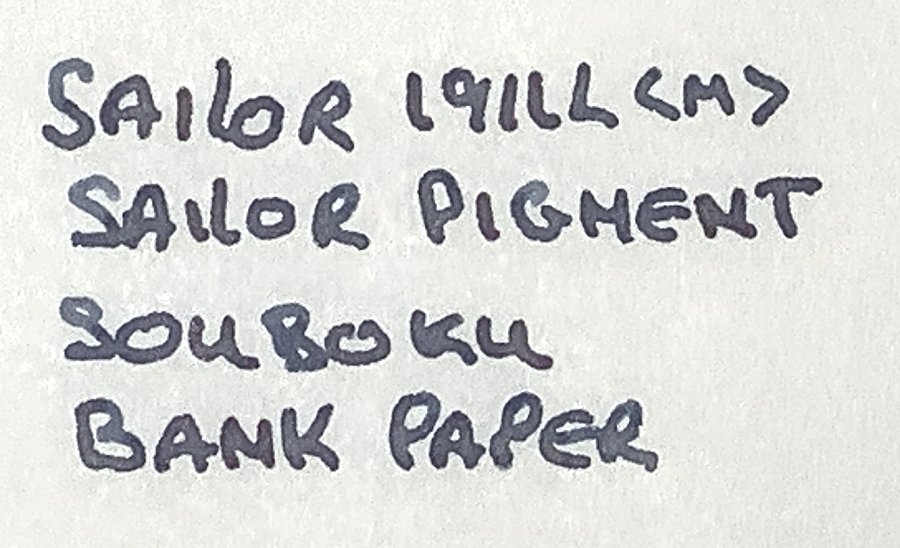 SAILOR 1911L <M>
SAILOR PIGMENT
SOUBOKU
BANK PAPER